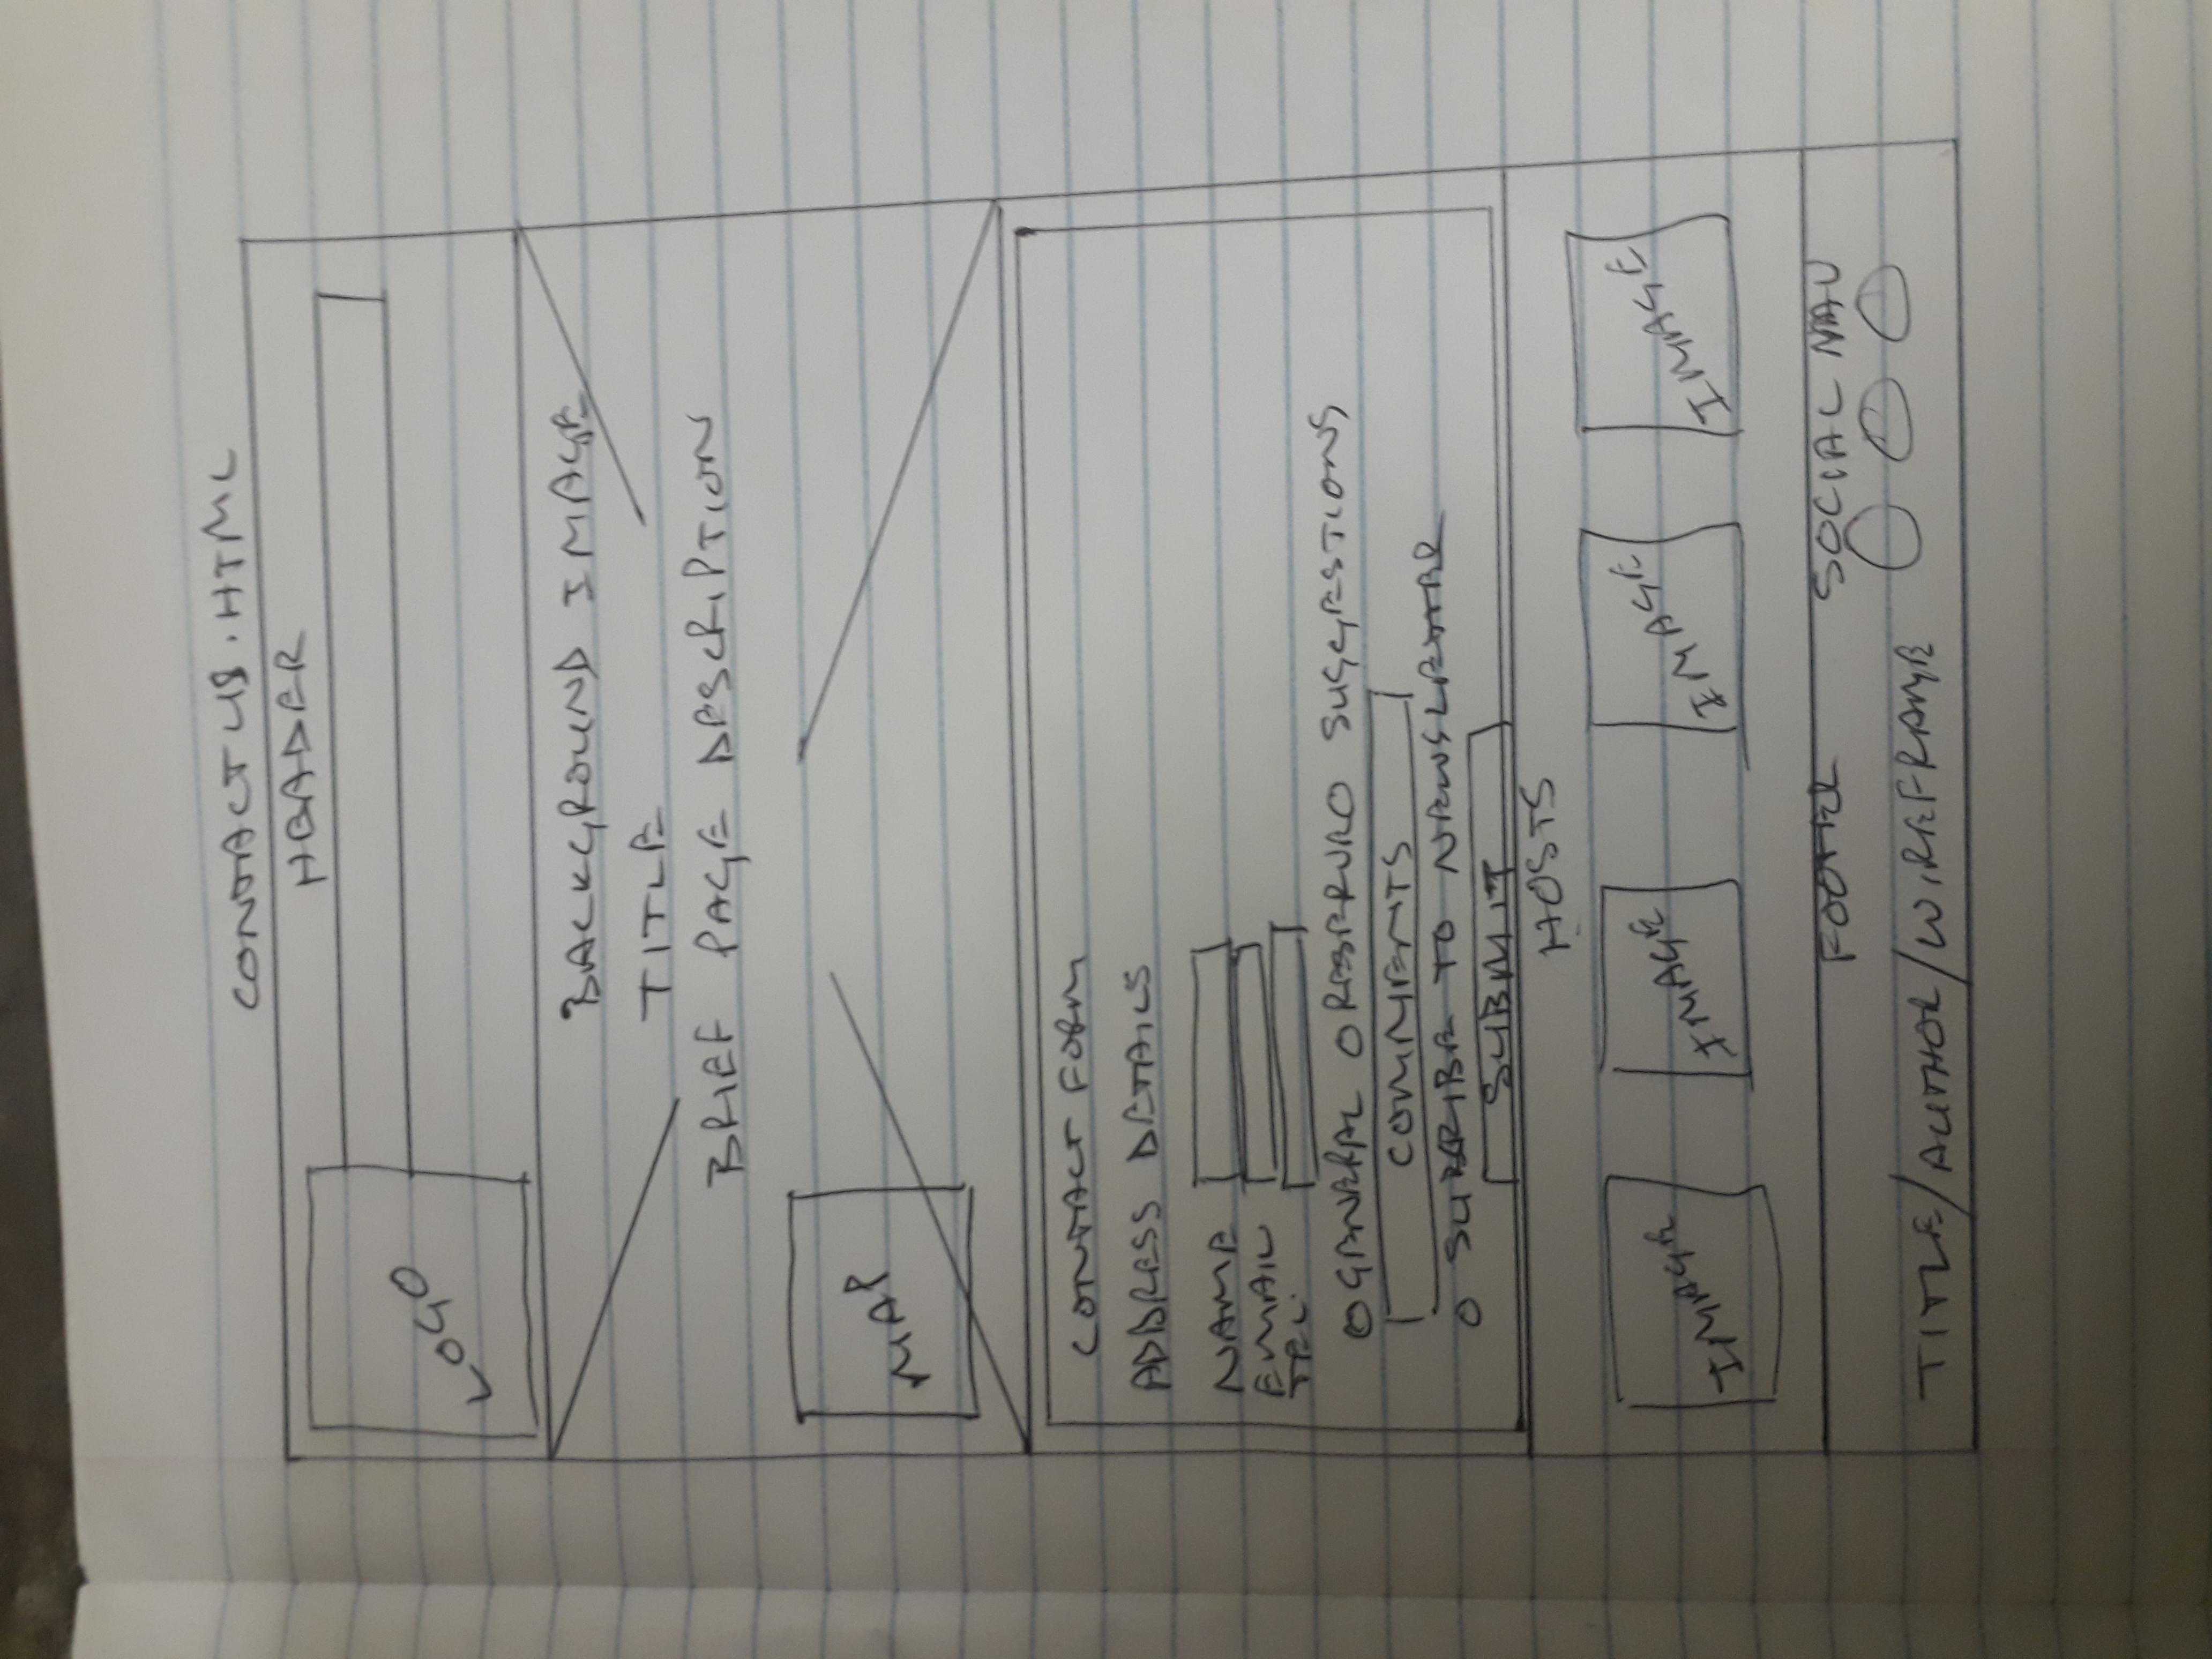 CONTACT US.HTML
HEADER
LOGO
BACKGROUND IMAGE
TITLE
BRIEF PAGE DESCRIPTION
MAP
CONTACT FORM
ADDRESS DETAILS
NAME
EMAIL
TEL.
GENERAL SUGGESTIONS
COMMENTS
SUBSCRIBE TO NEWSLETTER
SUBMIT
HOSTS
IMAGE IMAGE IMAGE IMAGE
FOOTER SOCIAL NAV
TITLE/AUTHOR/WIREFRAME